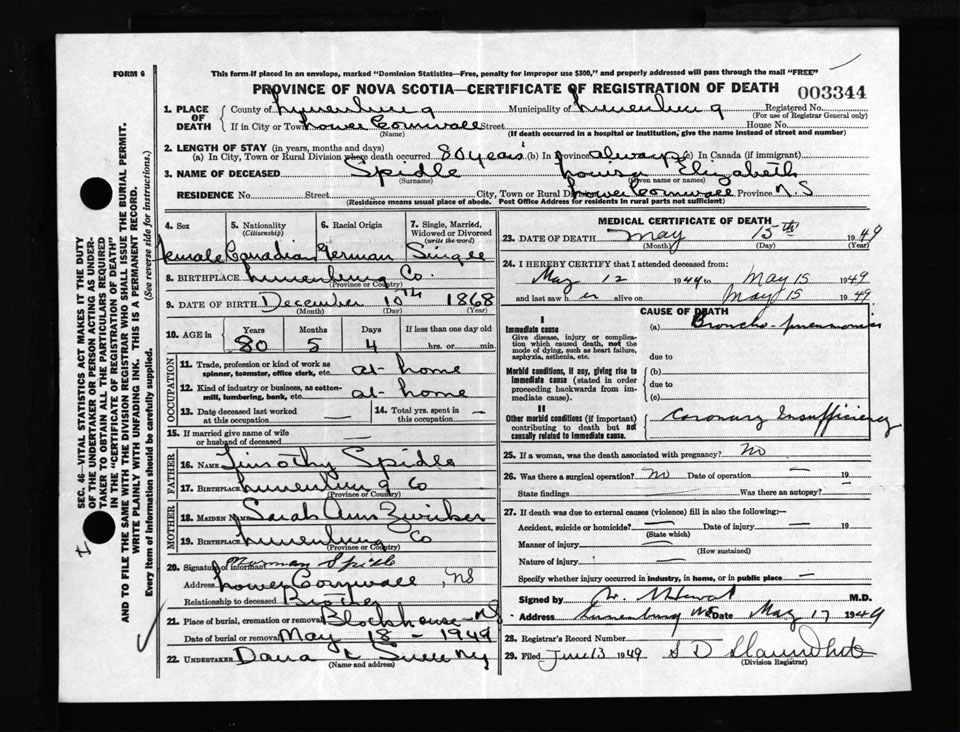 FORM 6
This form if placed in an envelope, marked "Dominion Statistics—Free, penalty for improper use $300," and properly addressed will pass through the mail "FREE"
PROVINCE OF NOVA SCOTIA—CERTIFICATE OF REGISTRATION OF DEATH 003344
1. PLACE OF DEATH County of Lunenburg Municipality of Lunenburg Registered No.
(For use of Registrar General only)
If in City or Town Lower Cornwall Street House No.
(Name) (If death occurred in a hospital or institution, give the name instead of street and number)
2. LENGTH OF STAY (in years, months and days)
(a) In City, Town or Rural Division where death occurred 80 years (b) In Province always (c) In Canada (if immigrant)
3. NAME OF DECEASED Spidle Louisa Elizabeth
(Surname) (Given name or names)
RESIDENCE No. Street City, Town or Rural D Lower Cornwall Province N.S
(Residence means usual place of abode. Post Office Address for residents in rural parts not sufficient)
4. Sex 5. Nationality (Citizenship) 6. Racial Origin 7. Single, Married, Widowed or Divorced (write the word)
Female Canadian German Single
8. BIRTHPLACE Lunenburg Co.
(Province or Country)
9. DATE OF BIRTH December 10TH 1868
(Month) (Day) (Year)
10. AGE in Years Months Days If less than one day old
80 5 4 hrs. or min.
11. Trade, profession or kind of work as spinner, teamster, office clerk, etc. at home
12. Kind of industry or business, as cotton-mill, lumbering, bank, etc. at home
13. Date deceased last worked at this occupation — 14. Total yrs. spent in this occupation —
15. If married give name of wife or husband of deceased —
16. NAME Timothy Spidle
17. BIRTHPLACE Lunenburg Co
(Province or Country)
18. MAIDEN NAME Sarah Ann Zwicker
19. BIRTHPLACE Lunenburg Co
(Province or Country)
20. Signature of informant Spidle
Address Lower Cornwall, NS
Relationship to deceased Brother
21. Place of burial, cremation or removal Blockhouse NS
Date of burial or removal May 18 - 1949
22. UNDERTAKER Dana
(Name and address)
OCCUPATION
FATHER
MOTHER
MEDICAL CERTIFICATE OF DEATH
23. DATE OF DEATH May 15th 1949
(Month) (Day) (Year)
24. I HEREBY CERTIFY that I attended deceased from:
May 12 1949 to May 15 1949
and last saw her alive on May 15 1949
CAUSE OF DEATH
I
Immediate cause (a) Broncho-pneumonia
Give disease, injury or complication which caused death, not the mode of dying, such as heart failure, asphyxia, asthenia, etc. due to
Morbid conditions, if any, giving rise to immediate cause (stated in order proceeding backwards from immediate cause). (b) due to (c)
II
Other morbid conditions (if important) contributing to death but not causally related to immediate cause. Coronary Insufficiency
25. If a woman, was the death associated with pregnancy? No
26. Was there a surgical operation? No Date of operation — 19
State findings Was there an autopsy?
27. If death was due to external causes (violence) fill in also the following:—
Accident, suicide or homicide? — Date of injury — 19
(State which)
Manner of injury —
(How sustained)
Nature of injury —
Specify whether injury occurred in industry, in home, or in public place —
Signed by M.D.
Address Lunenburg NS Date May 17 1949
28. Registrar's Record Number
29. Filed June 13 1949 S D
(Division Registrar)
SEC. 46—VITAL STATISTICS ACT MAKES IT THE DUTY
OF THE UNDERTAKER OR PERSON ACTING AS UNDER-
TAKER TO OBTAIN ALL THE PARTICULARS REQUIRED
IN THE "CERTIFICATE OF REGISTRATION OF DEATH"
AND TO FILE THE SAME WITH THE DIVISION REGISTRAR WHO SHALL ISSUE THE BURIAL PERMIT.
WRITE PLAINLY WITH UNFADING INK. THIS IS A PERMANENT RECORD.
Every item of information should be carefully supplied. (See reverse side for instructions.)